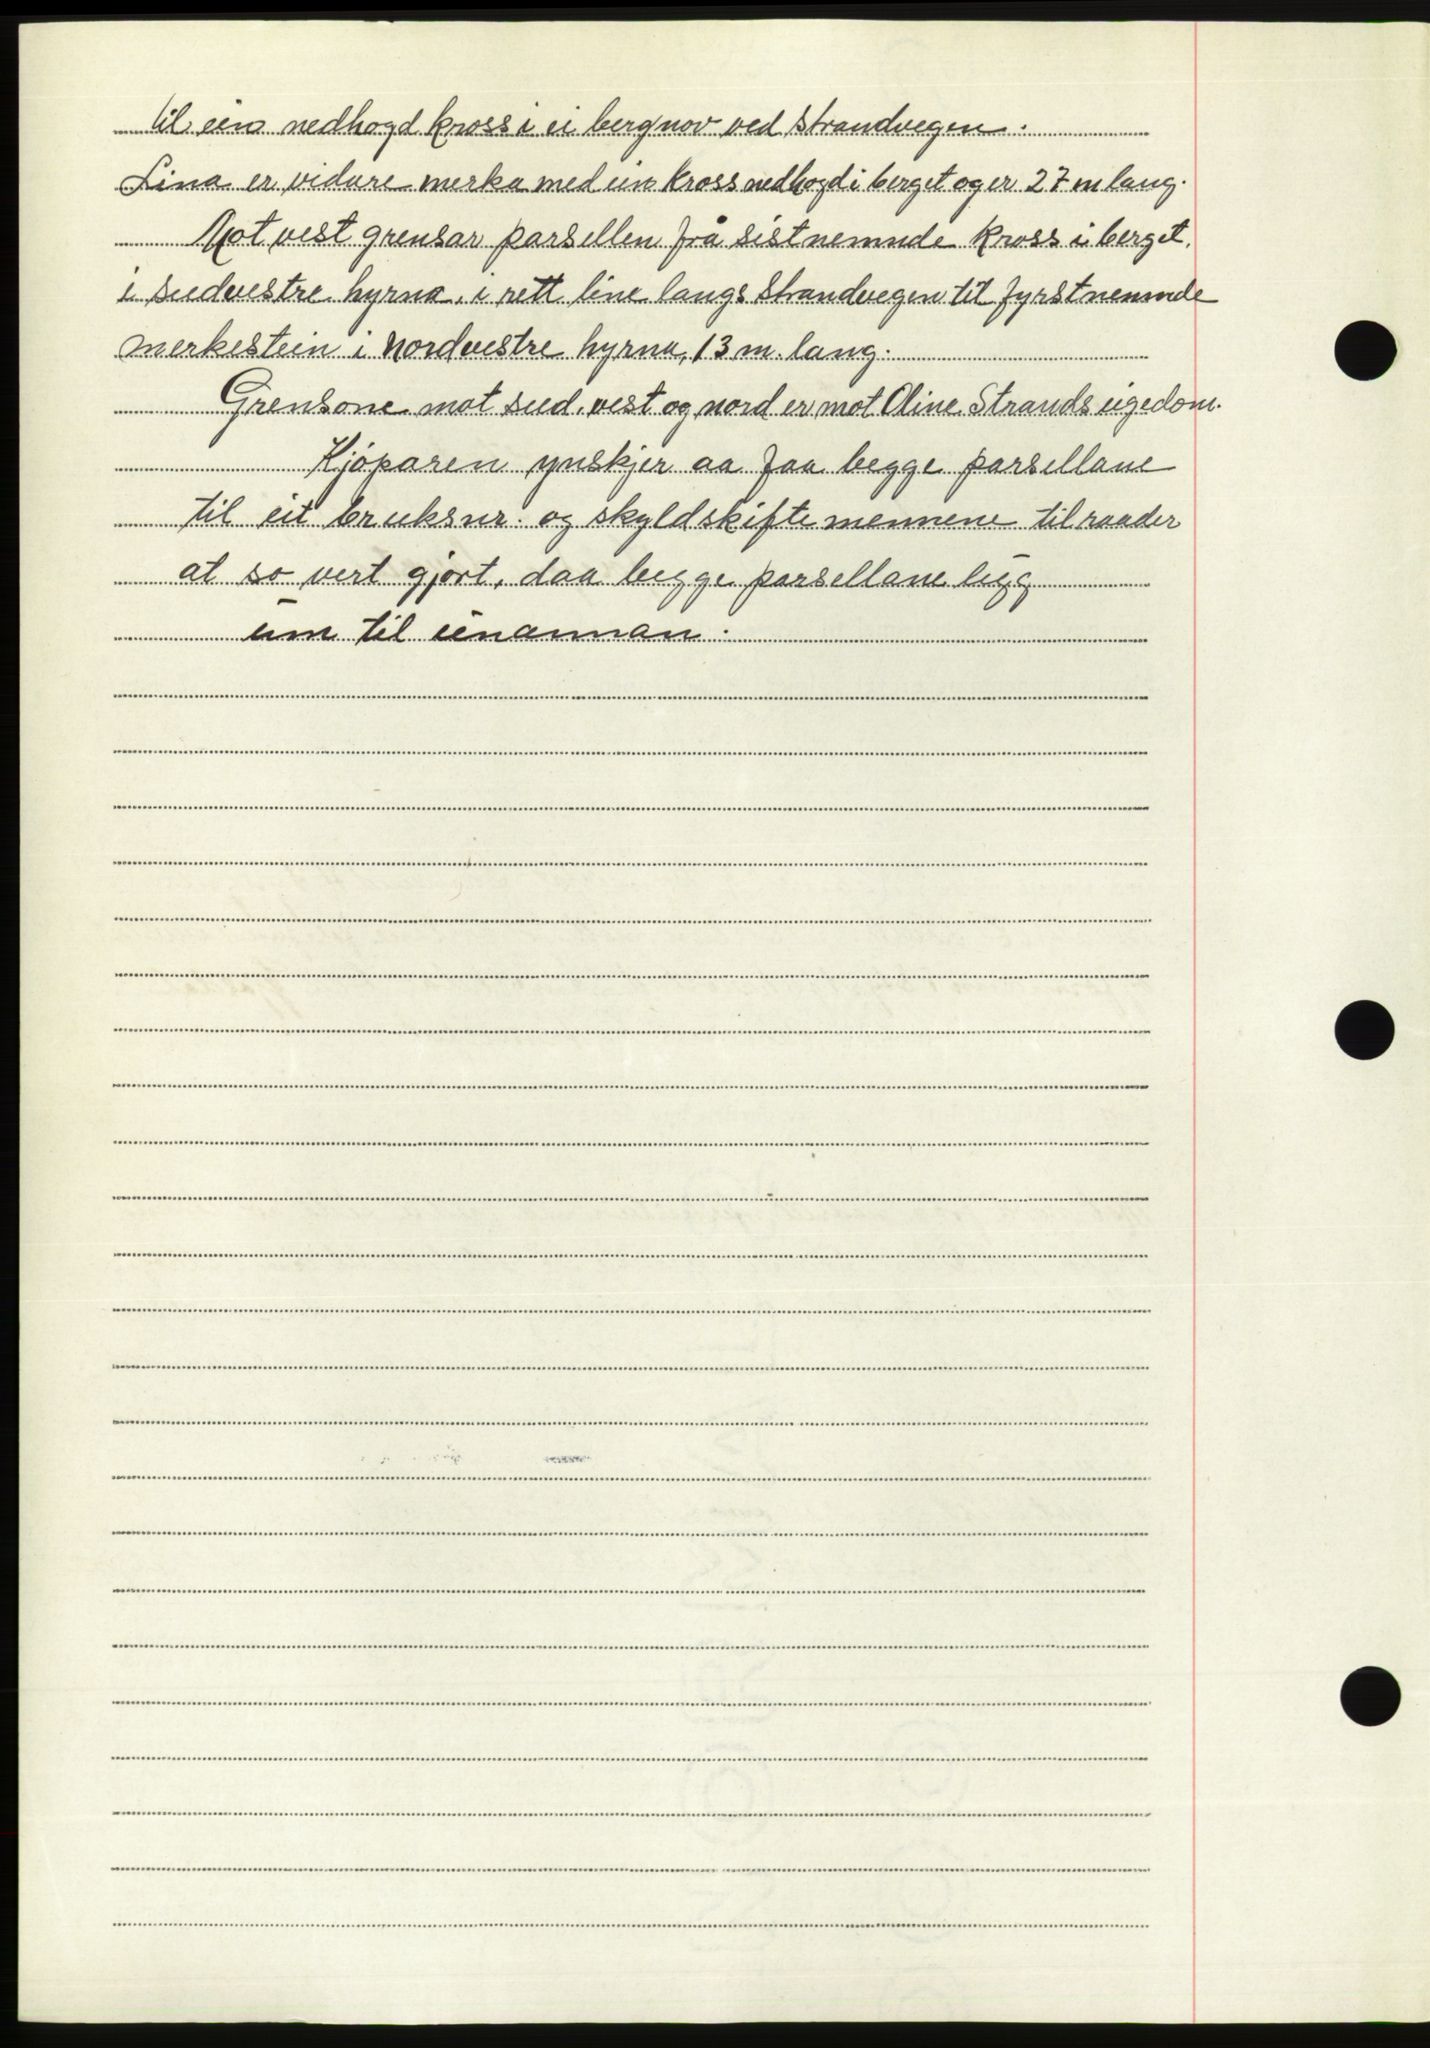 til ein nedhogd kross i ei bergnov ved strandvegen.
Lina er vidare merka med ein kross nedhogd i berget og er 27 m lang.
Mot vest grensar parsellen frå sistnemnde kross i berget,
i sudvestre hyrna, i rett line langs strandvegen til fyrstnemnde
merkestein i nordvestre hyrna, 13 m. lang.
Grensone mot sud, vest og nord er mot Oline Strands eigedom.
Kjöparen ynskjer aa faa begge parsellane
til eit bruksnr. og skyldskiftemennene tilraader
at so vert gjort, daa begge parsellane ligg
um til einannan.